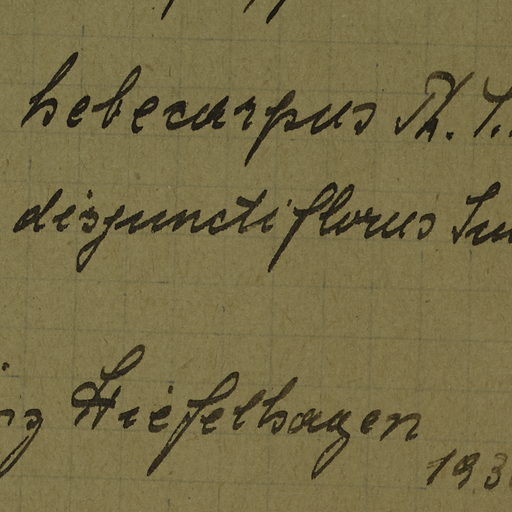 hebecarpus Th.
disjunctiflorus
Hiefelhagen
193